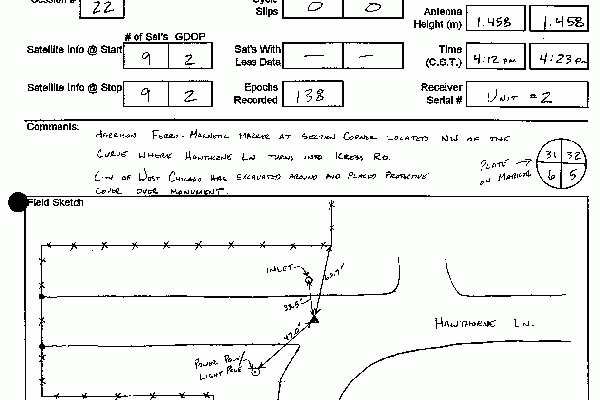 Session # 22
Cycle Slips 0 0
Antenna Height (m) 1.458 1.458
# of Sat's GDOP
Satellite Info @ Start 9 2
Sat's With Less Data — —
Time (C.S.T.) 4:12 PM 4:23 PM
Satellite Info @ Stop 9 2
Epochs Recorded 138
Receiver Serial # UNIT #2
Comments:
HARRISON FERRO-MAGNETIC MARKER AT SECTION CORNER LOCATED NW OF THE
CURVE WHERE HAWTHORNE LN TURNS INTO KRESS RD.
CITY OF WEST CHICAGO HAS EXCAVATED AROUND AND PLACED PROTECTIVE
COVER OVER MONUMENT.
PLATE ON MARKER
31 32
6 5
Field Sketch
INLET
62.7'
33.5'
47.0'
HAWTHORNE LN.
POWER POLE/
LIGHT POLE